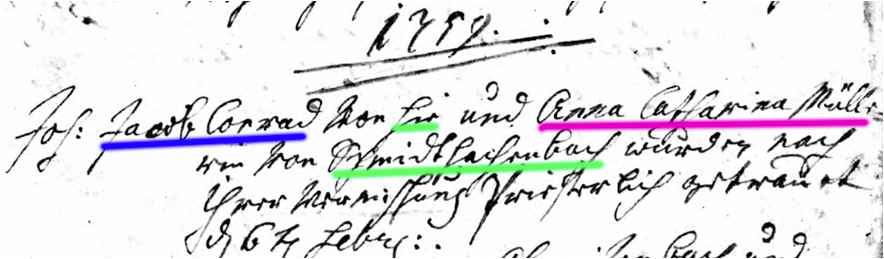 1759.
Joh: Jacob Conrad von hie und Anna Catharina Mülle
rin von Schmidthachenbach wurden nach
ihrer Verein Priesterlich getrauet
d 6t Febr:.